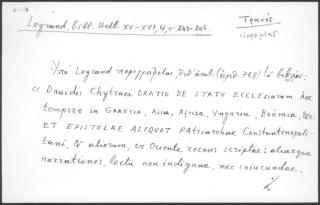 Legrand, Bibl. Hell. XV-XVI, 4, σ. 243-245.
Τρανός
Ὑπὸ Legrand περιγράφεται, (ἀριθ. 768) τὸ βιβλίον:
« Davidis Chytraei ORATIO DE STATU ECCLESIARUM hoc
tempore in GRAECIA, Asia, Africa, Vngaria, Boëmia, &c.
ET EPISTOLAE ALIQVOT PATRIARCHAE Constantinopoli-
tani, & aliorum, ex Oriente recens scriptae: aliaeque
narrationes, lectu non indignae, nec iniucundae.